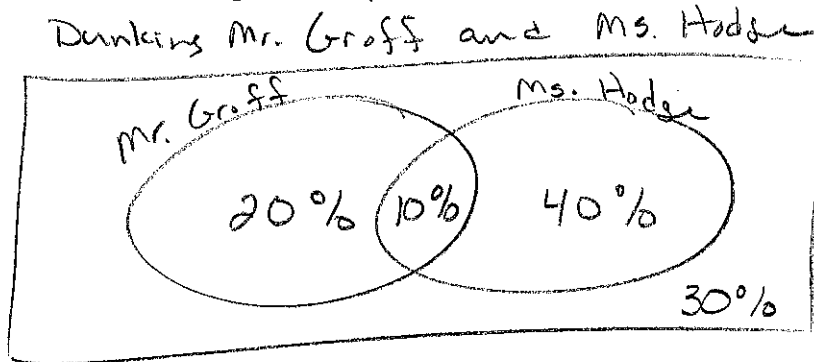 Dunking Mr. Groff and Ms. Hodge
Mr. Groff
Ms. Hodge
20% 10% 40%
30%